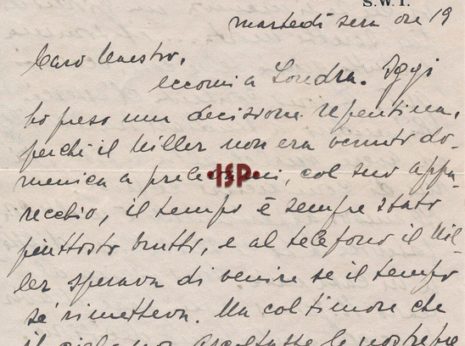 S.W.1.
martedì sera ore 19
Caro Maestro,
eccomi a Londra. Oggi
ho preso una decisione repentina,
perchè il Miller non era venuto do-
menica a prelevarmi, col suo appa-
•ISP•
recchio, il tempo è sempre stato
piuttosto brutto, e al telefono il Mil-
ler sperava di venire se il tempo
si rimetteva. Ma col timore che
il cielo non ascoltasse le nostre